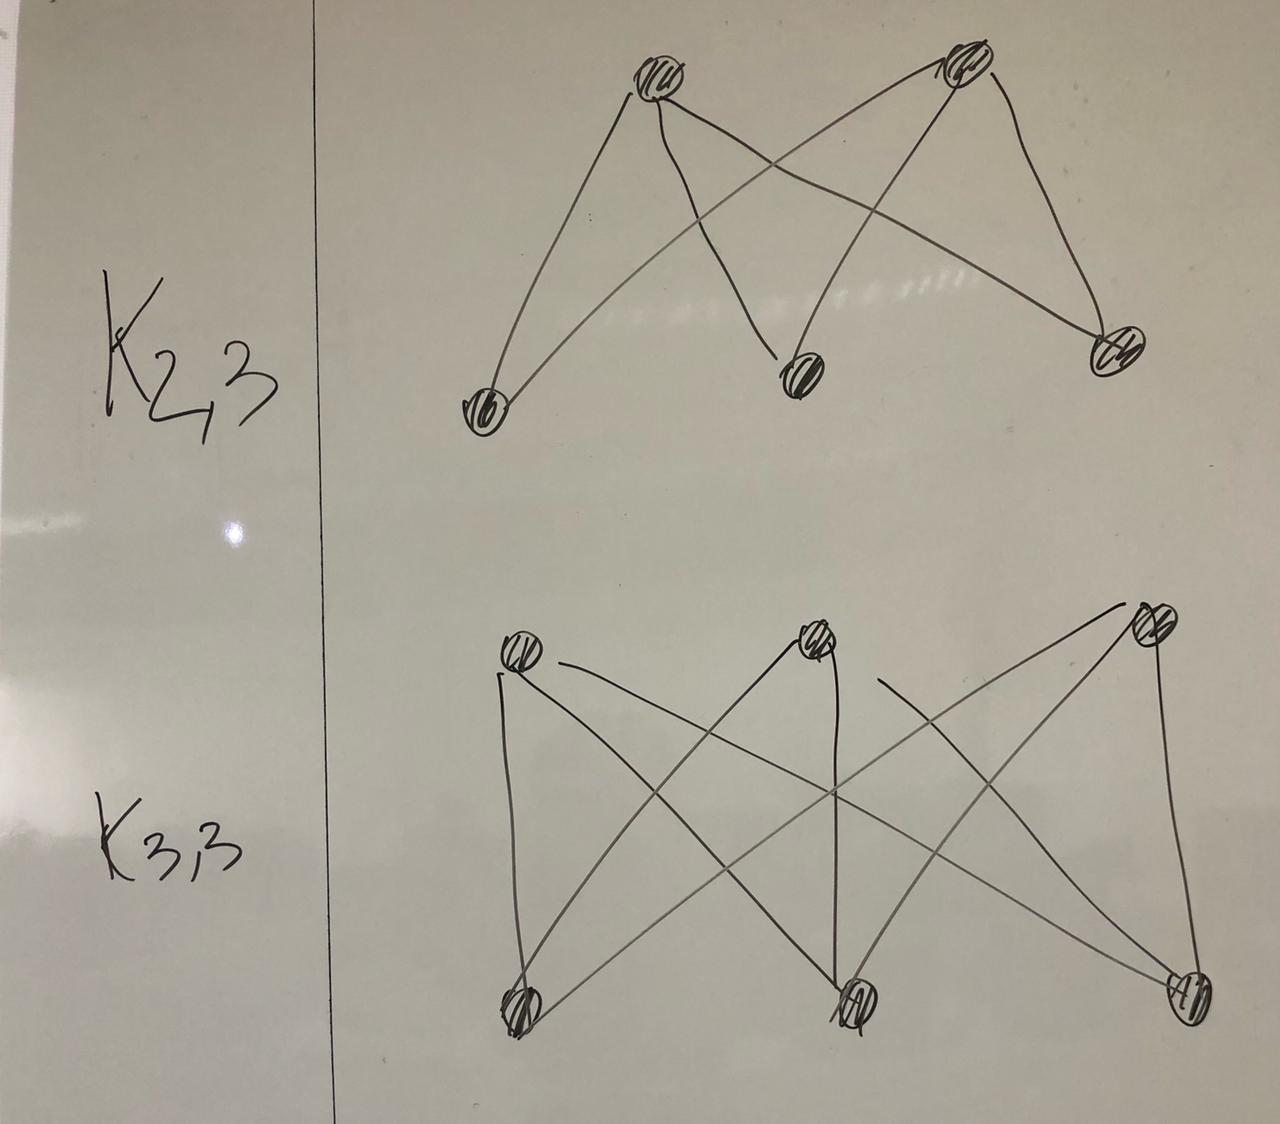 K2,3
K3,3